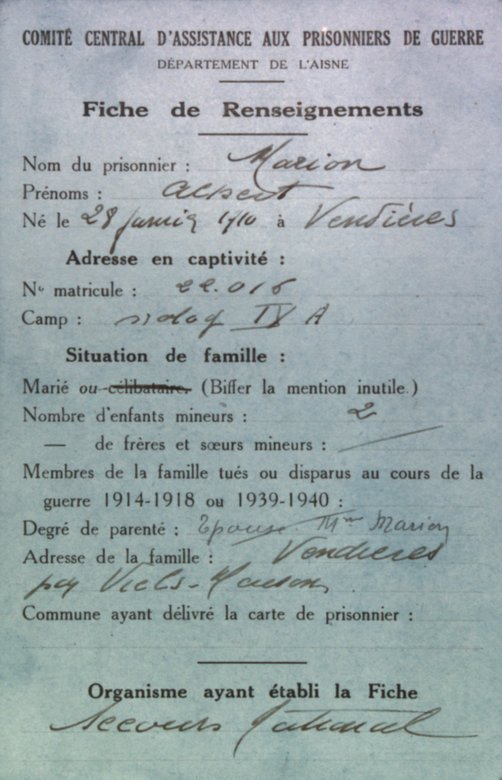 COMITÉ CENTRAL D'ASSISTANCE AUX PRISONNIERS DE GUERRE
DÉPARTEMENT DE L'AISNE
Fiche de Renseignements
Nom du prisonnier : Marion
Prénoms : Albert
Né le 28 janvier 1910 à Vendières
Adresse en captivité :
No matricule : 22.016
Camp : stalag IX A
Situation de famille :
Marié ou célibataire. (Biffer la mention inutile.)
Nombre d'enfants mineurs : 2
— de frères et sœurs mineurs :
Membres de la famille tués ou disparus au cours de la
guerre 1914-1918 ou 1939-1940 :
Degré de parenté : Epouse Mme Marion
Adresse de la famille : Vendieres
par Viels-Maisons
Commune ayant délivré la carte de prisonnier :
Organisme ayant établi la Fiche
Secours National